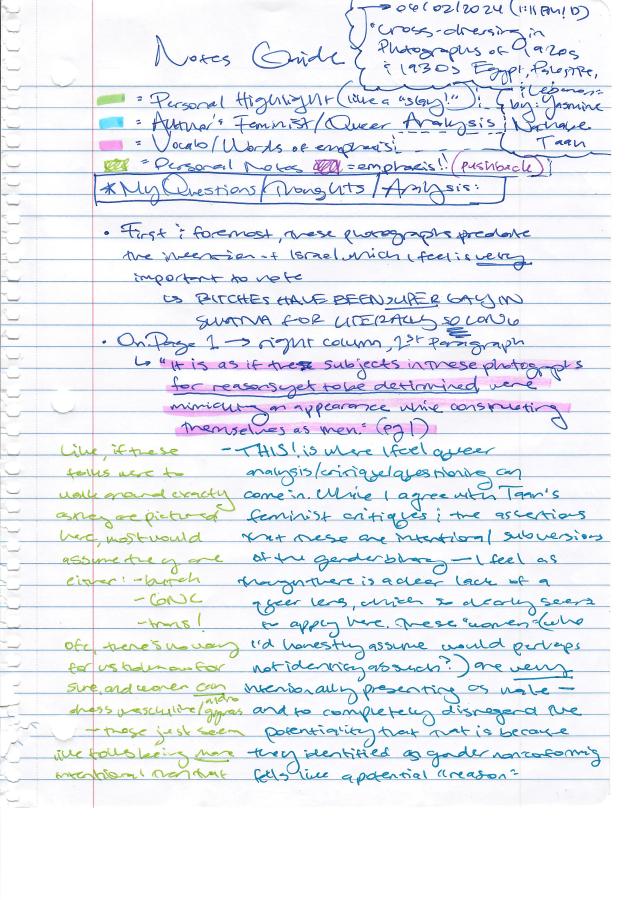 Notes Guide
→ 04/02/2024 (1:11 AM! :D)
"Cross-dressing in
Photographs of 1920s
& 1930s Egypt, Palestine,
& Lebanon"
by: Yasmine
Nachabe
Taan
= Personal Highlight (like a "slay!")
= Author's Feminist/Queer Analysis
= Vocab/Words of emphasis
= Personal Notes = emphasis!! (pushback)
*My Questions/Thoughts/Analysis:
• First & foremost, these photographs predate
the invention of Israel, which I feel is very
important to note
↳ BITCHES HAVE BEEN SUPER GAY IN
SWANA FOR LITERALLY SO LONG
• On Page 1 → right column, 1st Paragraph
↳ "It is as if these subjects in these photographs
for reasons yet to be determined were
mimicking an appearance while constructing
themselves as men." (pg 1)
- THIS! is where I feel queer
analysis/critique/questioning can
come in. While I agree with Taan's
feminist critiques & the assertions
that these are intentional subversions
of the gender binary — I feel as
though there is a clear lack of a
queer lens, which so clearly seems
to apply here. These "women" (who
I'd honestly assume would perhaps
not identify as such?) are very
intentionally presenting as male —
and to completely disregard the
potentiality that that is because
they identified as gender nonconforming
feels like a potential "reason"
Like, if these
folks were to
walk around exactly
as they are pictured
here, most would
assume they are
either: - butch
- GNC
- trans!
Ofc, there's no way
for us to know for
sure, and women can
dress masculine/andro
- these just seem
like folks being more
intentional than that